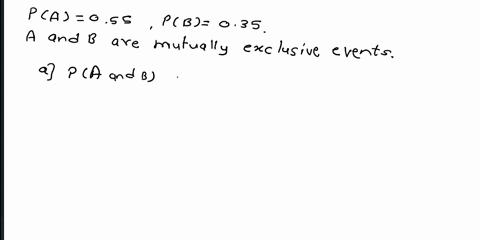 P(A) = 0.55 , P(B) = 0.35.
A and B are mutually exclusive events.
a] P(A and B)